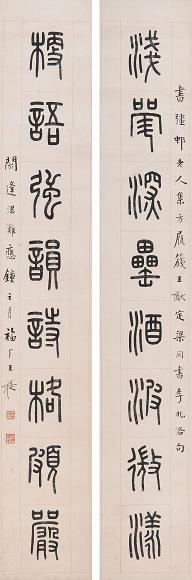 書彊邨老人集方履籛王猷定梁同書李兆洛句
淺斝深罍酒波微漾
語強韻詩格頗嚴
閼逢涒灘應鐘之月福厂王禔